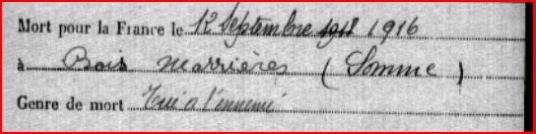 Mort pour la France le 12 Septembre 1918 1916
à Bois Marrières (Somme)
Genre de mort Tué à l'ennemi